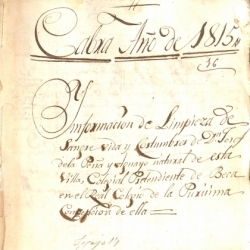 Cabra Año de 1815
16
Ynformacion de Limpieza de
Sangre vida y Costumbres de Dn Jose
de la Peña y Aguayo natural de esta
Villa, Colegial Pretendiente de Beca
en el Real Colegio de la Purisima
Concepcion de ella